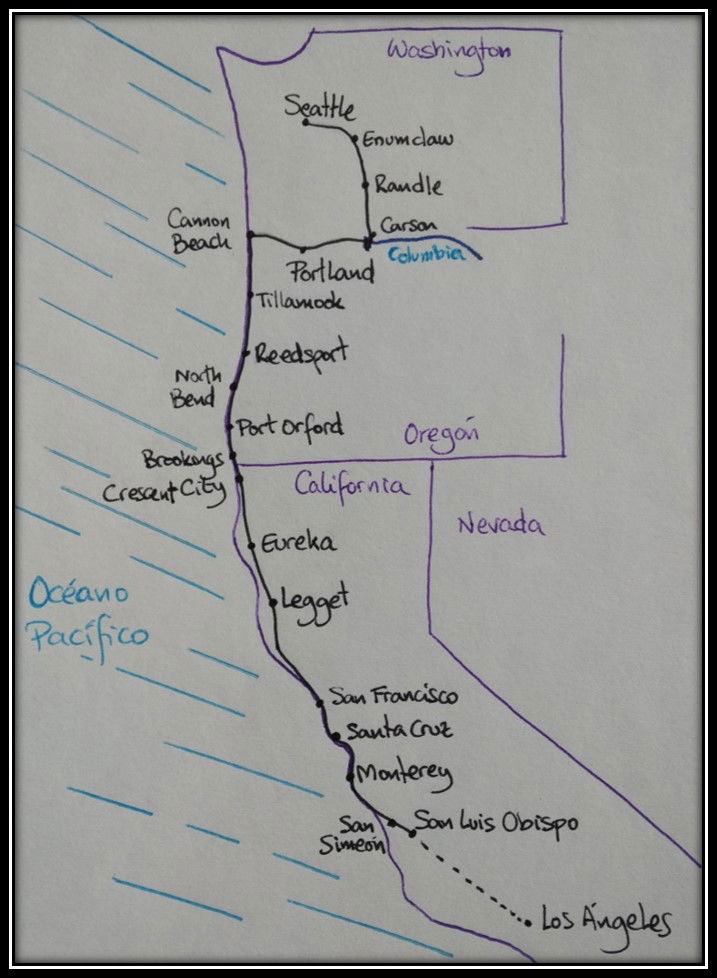 Washington
Seattle
Enumclaw
Randle
Carson
Cannon
Beach
Columbia
Portland
Tillamook
Reedsport
North
Bend
Port Orford
Oregón
Brookings
Crescent City
California
Nevada
Eureka
Océano
Pacífico
Legget
San Francisco
Santa Cruz
Monterey
San
Simeón
San Luis Obispo
Los Ángeles